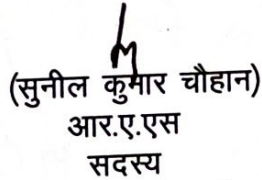 (सुनील कुमार चौहान)
आर.ए.एस
सदस्य